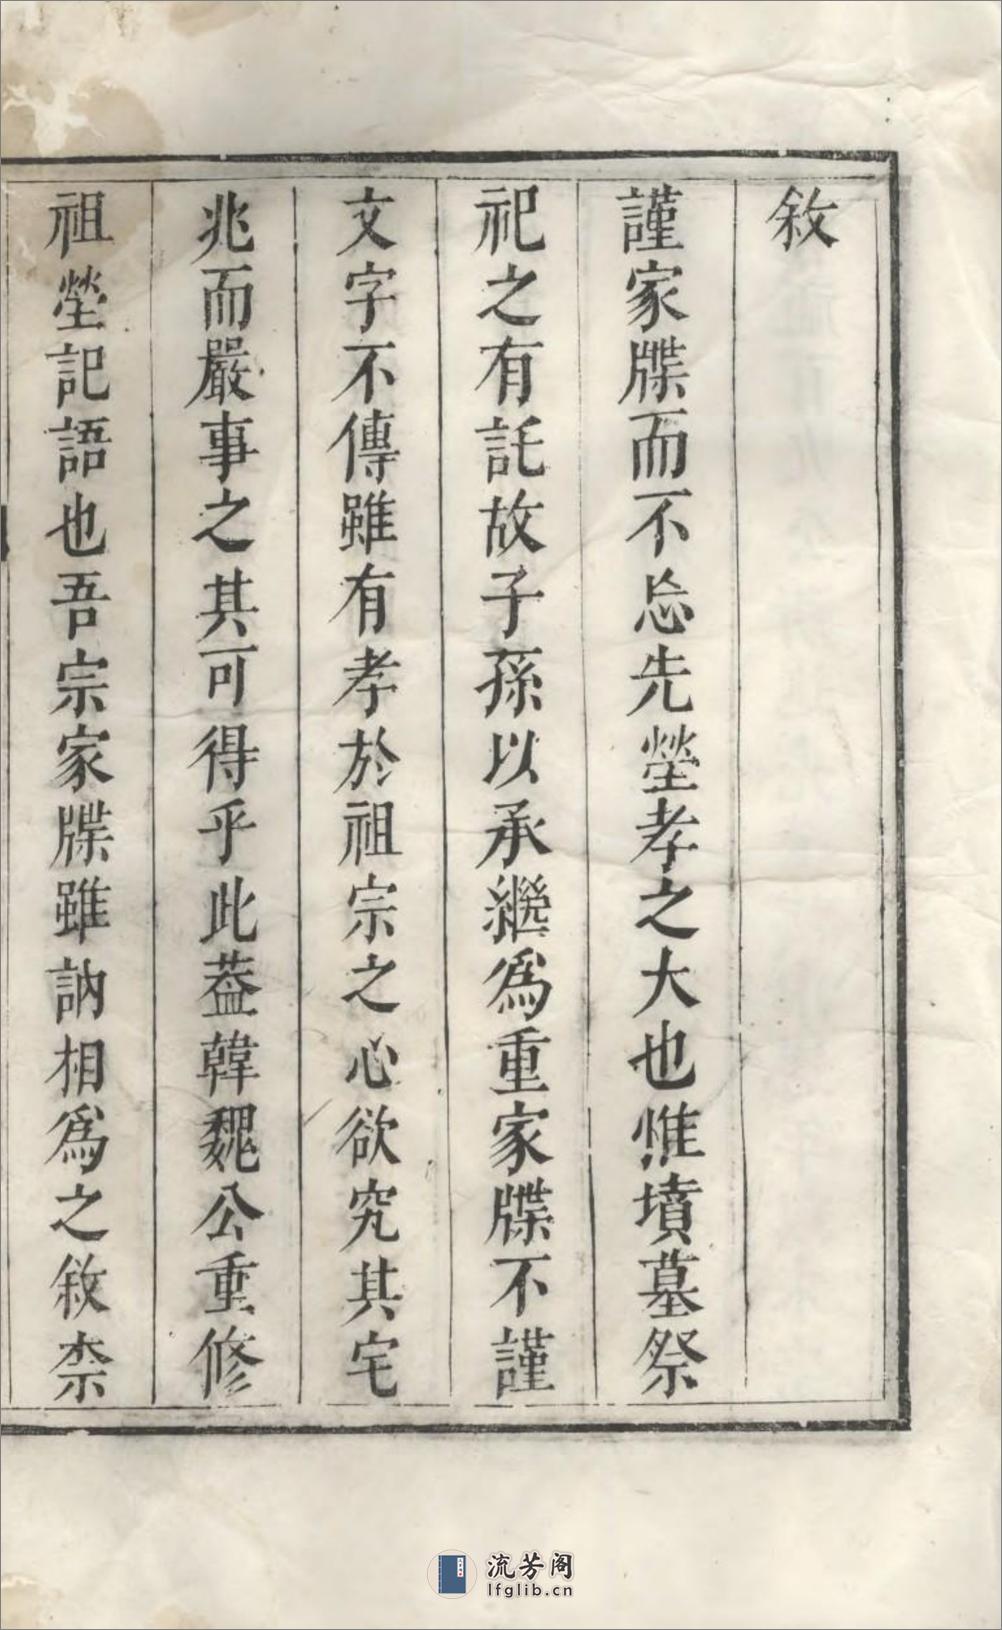 敘
謹家牒而不忘先塋孝之大也惟墳墓祭
祀之有託故子孫以承繼爲重家牒不謹
文字不傳雖有孝於祖宗之心欲究其宅
兆而嚴事之其可得乎此葢韓魏公重修
祖塋記語也吾宗家牒雖訥相爲之敘柰
流芳阁
lfglib.cn